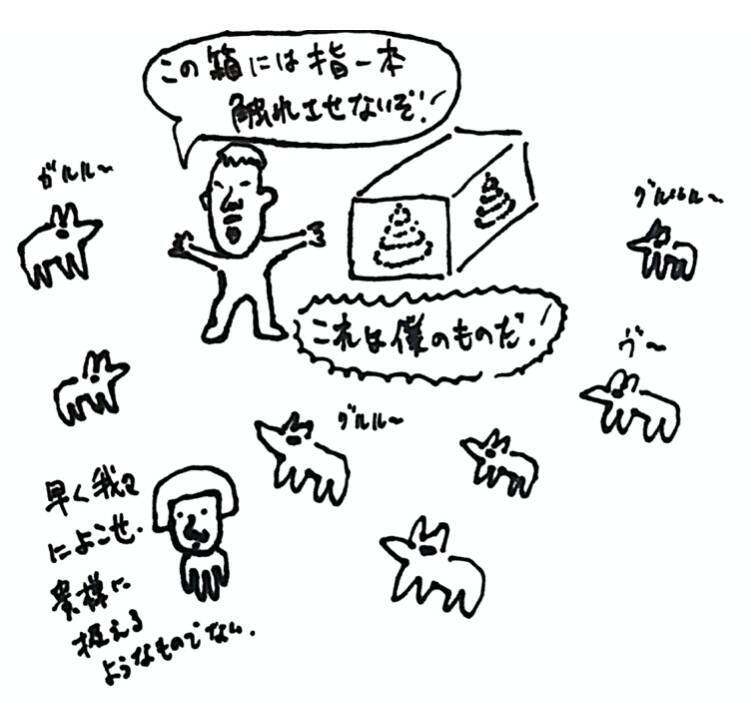 この箱には指一本
触れさせないぞ!
ガルルー
グルルルー
これは僕のものだ!
ヴー
グルルー
早く我々
によこせ.
貴様に
扱える
ようなものでない.